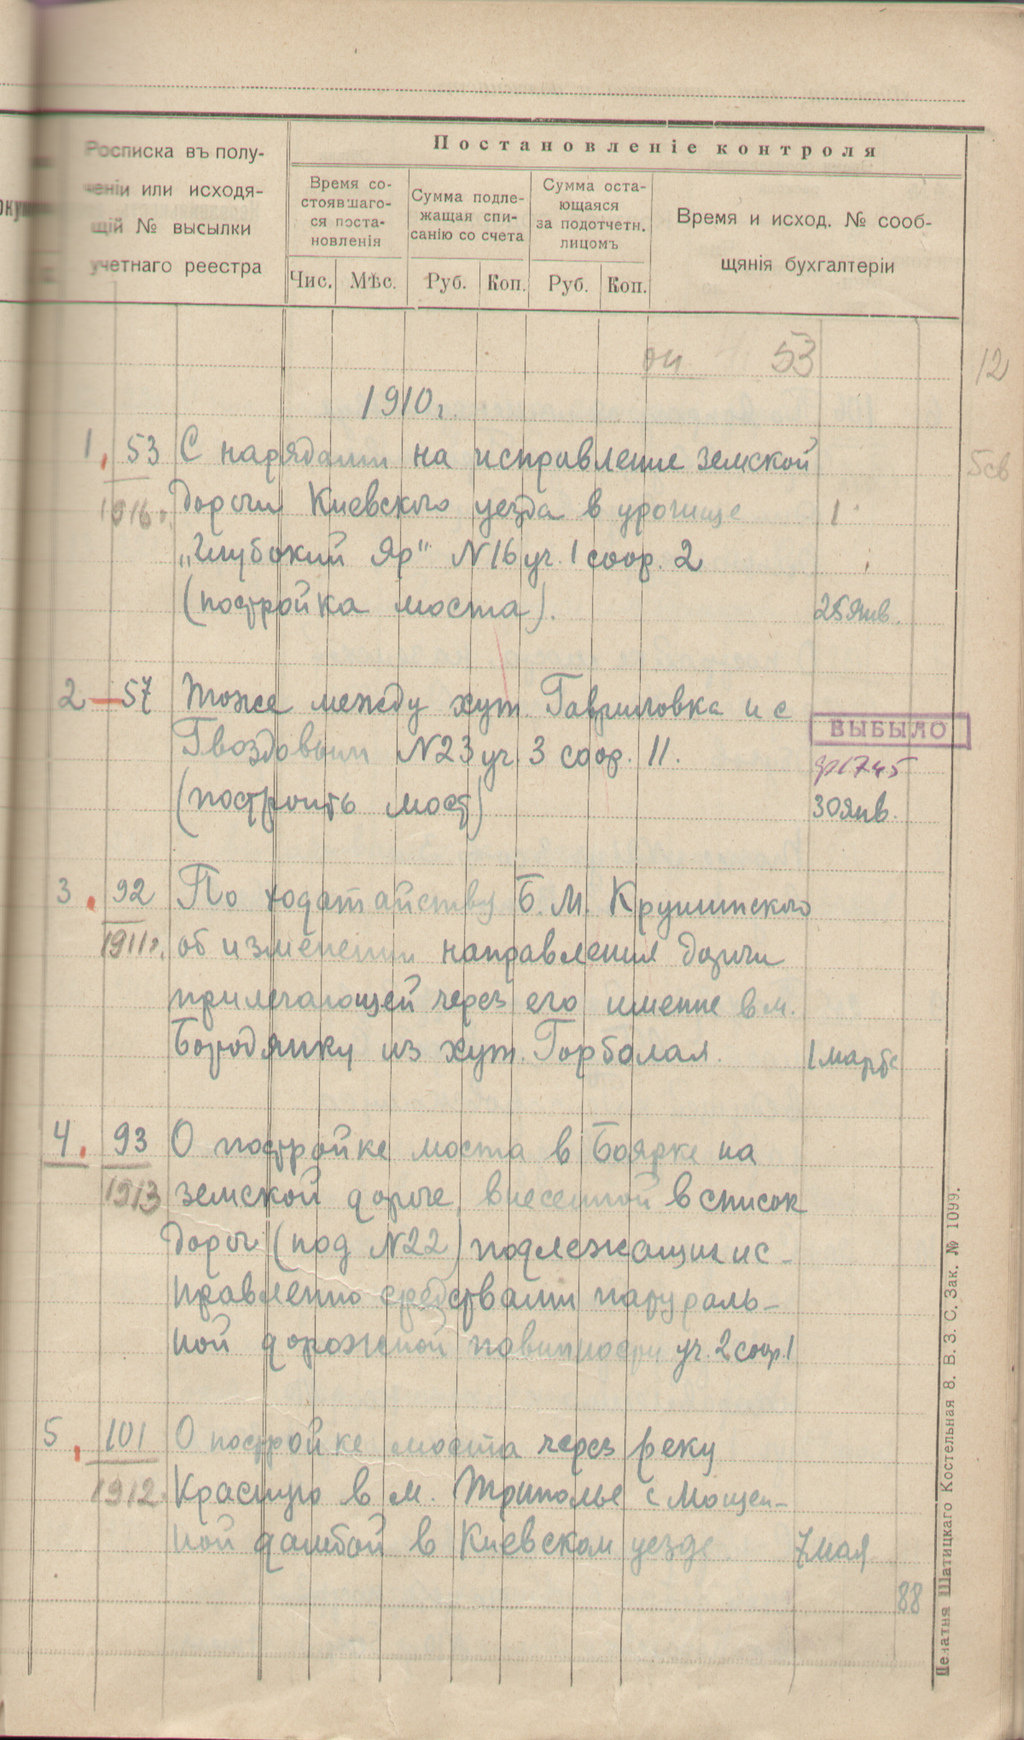 Росписка въ полу-
ченіи или исходя-
щій № высылки
учетнаго реестра
Постановленіе контроля
Время со-
стоявшаго-
ся поста-
новленія
Сумма подле-
жащая спи-
санію со счета
Сумма оста-
ющаяся
за подотчетн.
лицомъ
Время и исход. № сооб-
щянія бухгалтеріи
Чис. Мѣс. Руб. Коп. Руб. Коп.
оп 53
12
1910г.
1. 53 С нарядами на исправление земской
5св
1916г. дороги Киевского уезда в урочище 1
„Глубокий Яр" N16 уч. 1 соор. 2
(постройка моста). 25 янв.
2 — 57 Тоже между хут. Гавриловка и с
ВЫБЫЛО
Гвоздовым N23 уч. 3 соор. 11.
1745
(построить мост) 30 янв.
3. 92 По ходатайству Б. М. Крушинского
1911г. об изменении направления дороги
прилегающей через его имение в м.
Бородянку из хут. Горбалал. 1 марта
4. 93 О постройке моста в Боярке на
1913 земской дороге, внесенной в список
дорог (под N22) подлежащих ис-
правлению средствами натураль-
ной дорожной повинности уч. 2 соор. 1
5. 101 О постройке моста через реку
1912. Красную в м. Триполье с мощен-
ной дамбой в Киевском уезде 7 мая
88
Печатня Шатицкаго Костельная 8. В. З. С. Зак. № 1099.